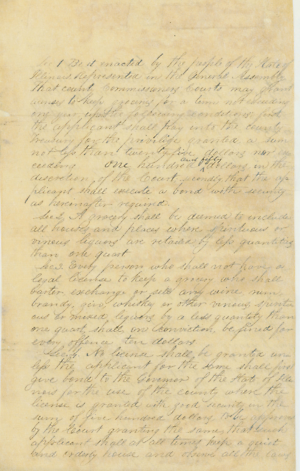 Sec 1 Be it enacted by the people of the State of
Illinois Represented in the General Assembly
That county Commissioners Courts may grant
licenses to keep groceries for a time not exceeding
one year upon the following conditions first
the applicant shall pay into the County
treasury for the privilege granted a sum
not less than twenty five dollars nor ex
ceeding one hundred and fifty dollars in the
discretion of the Court secondly that the ap
plicant shall execute a bond with security
as hereinafter required
Sec 2 A grocery shall be deemed to include
all houses and places where spirituous or
vinous liquors are retailed by less quantities
than one quart
Sec 3 Every person who shall not have a
legal licence to keep a grocery who shall
barter exchange or sell any wine rum
brandy gin whisky or other vinous spiritu
ous or mixed liquors by a less quantity than
one quart shall on conviction be fined for
every offence ten dollars
Sec 4 No licence shall be granted un
less the applicant for the same shall first
give bond to the Governor of the State of Illi
nois for the use of the county where the
license is granted with good security in the
sum of five hundred dollars to be approved
by the Court granting the same, that such
applicant shall at all times keep a quiet
and orderly house and